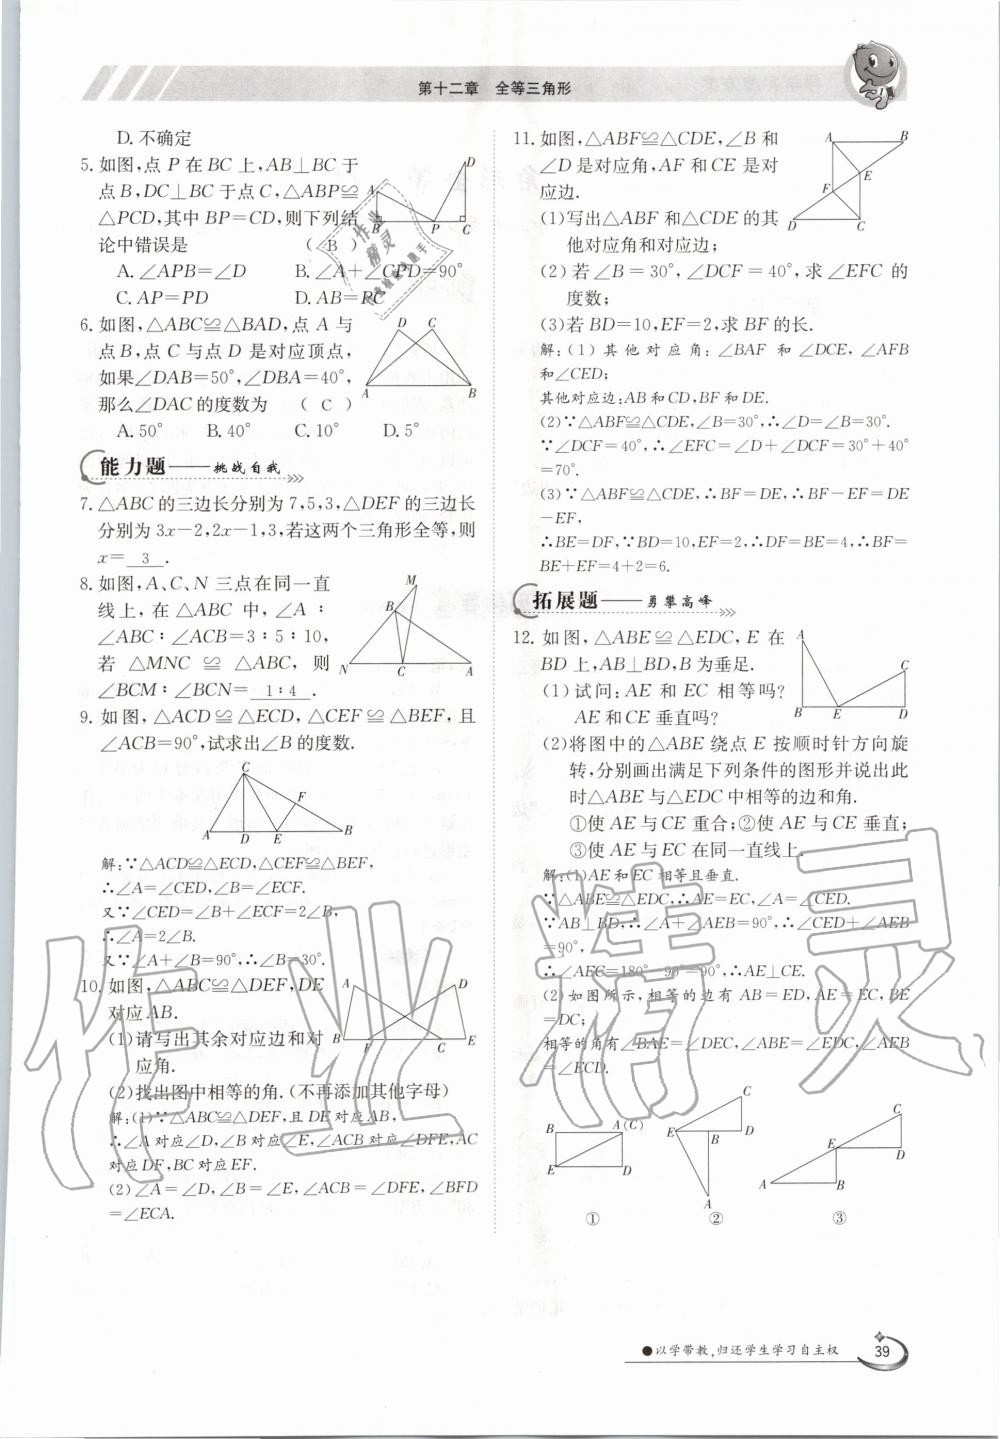 第十二章 全等三角形
D. 不确定
5. 如图,点 P 在 BC 上,AB⊥BC 于
点 B,DC⊥BC 于点 C,△ABP≌
△PCD,其中 BP=CD,则下列结
论中错误是 ( B )
A. ∠APB=∠D B. ∠A+∠CPD=90°
C. AP=PD D. AB=PC
A
D
B
P
C
6. 如图,△ABC≌△BAD,点 A 与
点 B,点 C 与点 D 是对应顶点,
如果∠DAB=50°,∠DBA=40°,
那么∠DAC 的度数为 ( C )
A. 50° B. 40° C. 10° D. 5°
D C
A B
能力题——挑战自我
7. △ABC 的三边长分别为 7,5,3,△DEF 的三边长
分别为 3x-2,2x-1,3,若这两个三角形全等,则
x= 3 .
8. 如图,A、C、N 三点在同一直
线上,在 △ABC 中,∠A∶
∠ABC∶∠ACB=3∶5∶10,
若 △MNC ≌ △ABC, 则
∠BCM∶∠BCN= 1∶4 .
M
B
N C A
9. 如图,△ACD≌△ECD,△CEF≌△BEF,且
∠ACB=90°,试求出∠B 的度数.
C
F
A D E B
解:∵△ACD≌△ECD,△CEF≌△BEF,
∴∠A=∠CED,∠B=∠ECF.
又∵∠CED=∠B+∠ECF=2∠B,
∴∠A=2∠B.
又∵∠A+∠B=90°,∴∠B=30°.
10. 如图,△ABC≌△DEF,DE
对应 AB.
(1)请写出其余对应边和对
应角.
(2)找出图中相等的角.(不再添加其他字母)
A D
B F C E
解:(1)∵△ABC≌△DEF,且 DE 对应 AB,
∴∠A 对应∠D,∠B 对应∠E,∠ACB 对应∠DFE,AC
对应 DF,BC 对应 EF.
(2)∠A=∠D,∠B=∠E,∠ACB=∠DFE,∠BFD
=∠ECA.
11. 如图,△ABF≌△CDE,∠B 和
∠D 是对应角,AF 和 CE 是对
应边.
(1)写出△ABF 和△CDE 的其
他对应角和对应边;
(2)若∠B=30°,∠DCF=40°,求∠EFC 的
度数;
(3)若 BD=10,EF=2,求 BF 的长.
A B
E
F
D C
解:(1)其他对应角:∠BAF 和∠DCE,∠AFB
和∠CED;
其他对应边:AB 和 CD,BF 和 DE.
(2)∵△ABF≌△CDE,∠B=30°,∴∠D=∠B=30°.
∵∠DCF=40°,∴∠EFC=∠D+∠DCF=30°+40°
=70°.
(3)∵△ABF≌△CDE,∴BF=DE,∴BF-EF=DE
-EF,
∴BE=DF,∵BD=10,EF=2,∴DF=BE=4,∴BF=
BE+EF=4+2=6.
拓展题——勇攀高峰
12. 如图,△ABE≌△EDC,E 在
BD 上,AB⊥BD,B 为垂足.
(1)试问:AE 和 EC 相等吗?
AE 和 CE 垂直吗?
A
C
B E D
(2)将图中的△ABE 绕点 E 按顺时针方向旋
转,分别画出满足下列条件的图形并说出此
时△ABE 与△EDC 中相等的边和角.
①使 AE 与 CE 重合;②使 AE 与 CE 垂直;
③使 AE 与 EC 在同一直线上.
解:(1)AE 和 EC 相等且垂直.
∵△ABE≌△EDC,∴AE=EC,∠A=∠CED.
∵AB⊥BD,∴∠A+∠AEB=90°,∴∠CED+∠AEB
=90°,
∴∠AEC=180°-90°=90°,∴AE⊥CE.
(2)如图所示,相等的边有 AB=ED,AE=EC,BE
=DC;
相等的角有∠BAE=∠DEC,∠ABE=∠EDC,∠AEB
=∠ECD.
B A(C)
E D
①
C
E B D
A
②
C
E D
A B
③
●以学带教,归还学生学习自主权
39
作业精灵